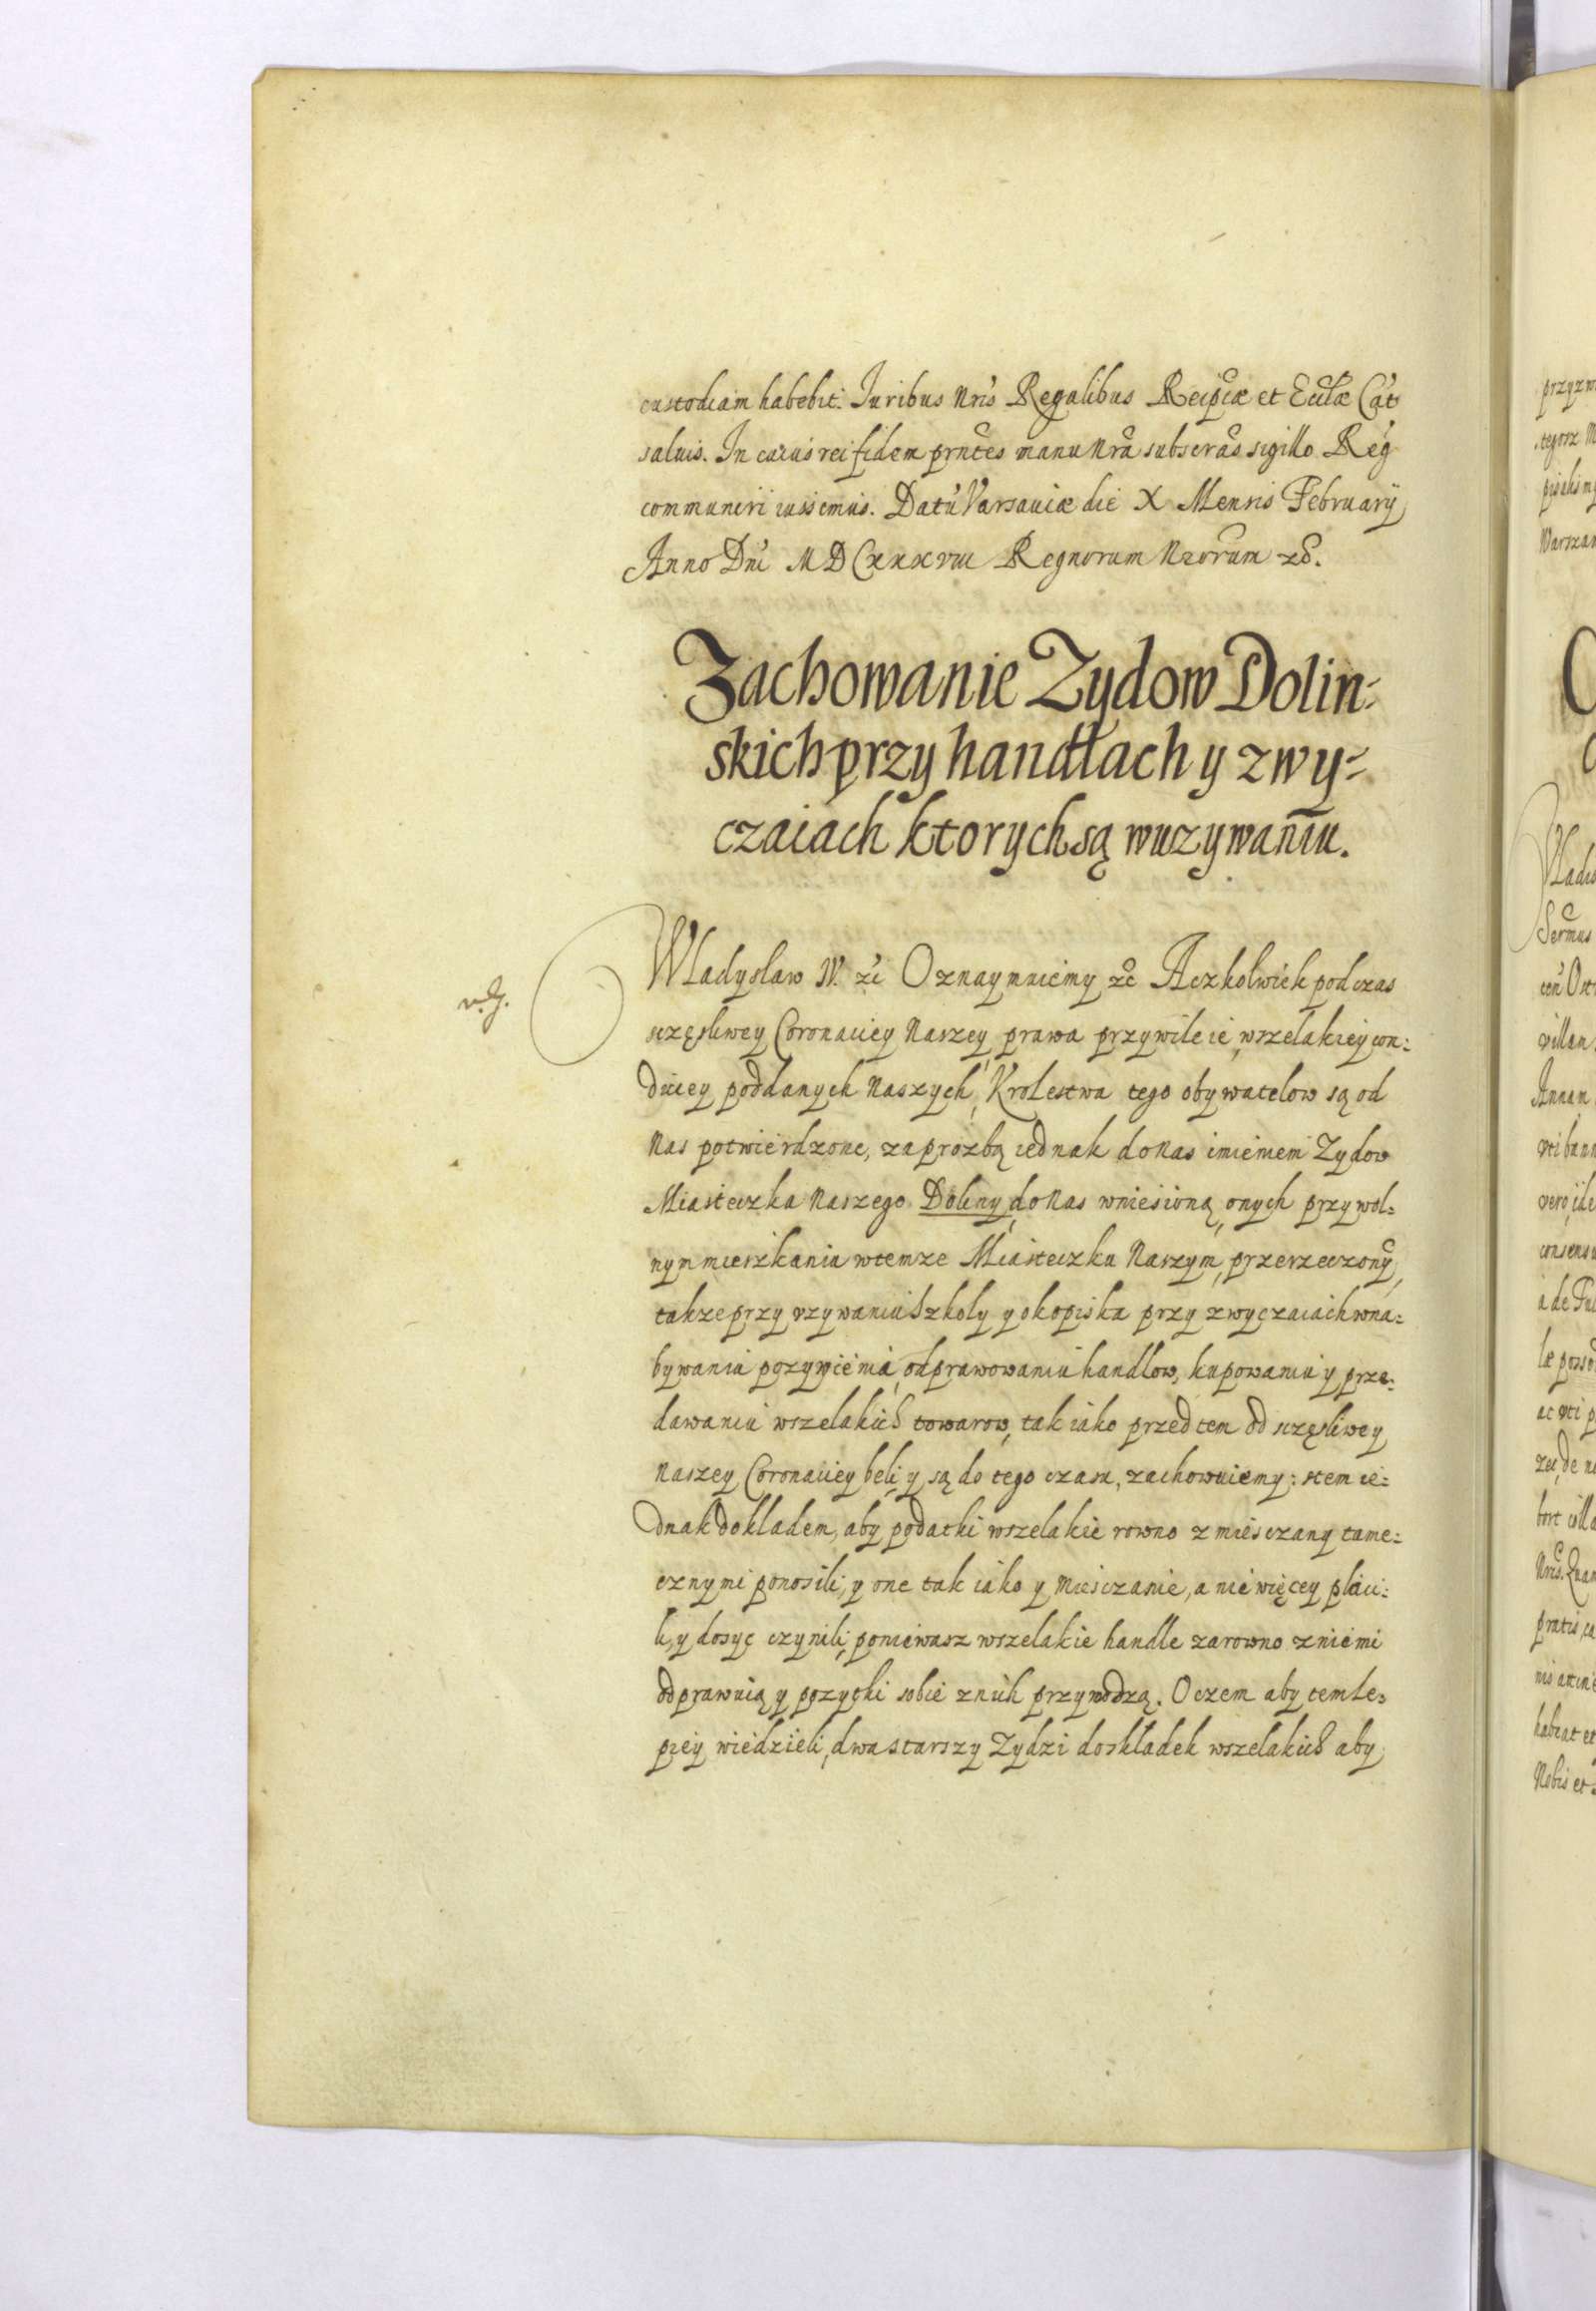 custodiam habebit. Iuribus Nris Regalibus Reipcae et Ecclae Cat
saluis. In cuius rei fidem prntes manu Nra subscras sigillo Reg
communiri iussimus. Datu Varsauiae die X Mensis February
Anno Dni MDCxxxviii Regnorum Nrorum
Zachowanie Zydow Dolin=
skich przy handlach y zwy=
czaiach ktorych są w uzywaniu.
Wladyslaw IV. Oznaymuiemy Aczkolwiek podczas
sczęsliwey Coronaciey Naszey prawa przywileie, wszelakiey con=
diciey poddanych Naszych, Krolestwa tego obywatelow są od
Nas potwierdzone, za prozbą iednak do Nas imieniem Zydow
Miasteczka Naszego Doliny, do Nas wniesioną, onych przy wol=
nym mieszkaniu w temze Miasteczku Naszym, przerzeczony,
takze przy uzywaniu Szkoly y okopiska przy zwyczaiach w na=
bywaniu pozywienia, odprawowaniu handlow, kupowaniu y prze=
dawaniu wszelakich towarow, tak iako przed tem od sczęsliwey
Naszey Coronaciey beli, y są do tego czasu, zachowuiemy: s tem ie=
dnak dokladem, aby podatki wszelakie rowno z miesczany tame=
cznymi ponosili, y one tak iako y Miesczanie, a nie więcey placi=
li, y dosyc czynili, poniewasz wszelakie handle zarowno z niemi
odprawuią y pozytki sobie z nich przywodzą. O czem aby tem le=
piey wiedzieli, dwa starszy Zydzi do skladek wszelakich aby